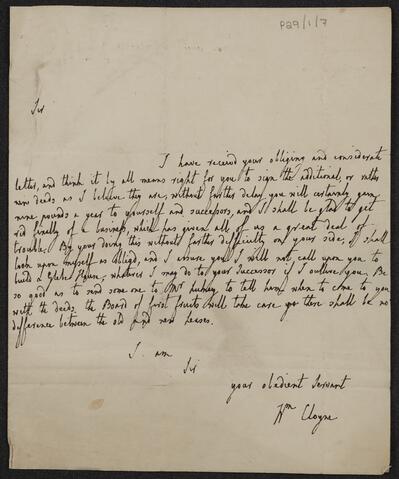 P29/1/7
Sir
I have receivd your obliging and considerate
letter, and think it by all means right for you to sign the additional, or rather
new deeds as I believe they are, without further delay you will certainly gain
nine pounds a year to yourself and successors, and I shall be glad to get
rid finally of a business, which has given all of us a great deal of
trouble. By your doing this without further difficulty on your side, I shall
look upon myself as obligd, and I assure you I will not call upon you to
build a Glebe House, whatever I may do to your Successor if I outlive you. Be
so good as to send some one to Mr to tell him when to come to you
with the deeds. the Board of first fruits will take care yt there shall be no
difference between the old and new leases.
I am
Sir
your obedient Servant
Wm Cloyne